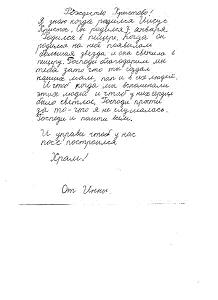 Рождество Христово!
Я знаю когда родился Иисус
Христос. Он родился 7 января.
Родился в пещере. Когда он
родился на небе появилась
большая звезда и она светила в
пещеру. Господи благодарим мы
тебя за то что ты создал
наших мам, пап и всех людей.
И что когда мы вспоминали
этих людей и чтоб у них сердце
было светлое, Господи прости
за то-что я не слушалась.
Господи и помоги всем.
И управи чтоб у нас
построился
Храм!
От Инны.